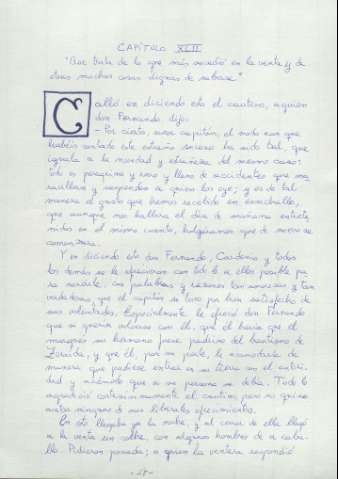 CAPÍTULO XLII
"Que trata de lo que más sucedió en la venta y de
otras muchas cosas dignas de saberse"
Calló en diciendo esto el cautivo, a quien
don Fernando dijo:
- Por cierto, señor capitán, el modo con que
habéis contado este extraño suceso ha sido tal, que
iguala a la novedad y extrañeza del mesmo caso:
todo es peregrino y raro y lleno de accidentes que ma
ravillan y suspenden a quien los oye; y es de tal
manera el gusto que hemos recebido en escuchalle,
que aunque nos hallara el día de mañana entrete
nidos en el mismo cuento, holgáramos que de nuevo se
comenzara.
Y en diciendo esto don Fernando, Cardenio y todos
los demás se le ofrecieron con todo lo a ellos posible pa
ra servirle, con palabras y razones tan amorosas y tan
verdaderas, que el capitán se tuvo por bien satisfecho de
sus voluntades. Especialmente le ofreció don Fernando
que si quería volverse con él, que él haría que el
marqués su hermano fuese padrino del bautismo de
Zoraida, y que él, por su parte, le acomodaría de
manera que pudiese entrar en su tierra con el autori-
dad y cómodo que a su persona se debía. Todo lo
agradeció cortesísimamente el cautivo, pero no quiso
aceptar ninguno de sus liberales ofrecimientos.
En esto llegaba ya la noche, y al cerrar della llegó
a la venta un coche, con algunos hombres de a caba-
llo. Pidieron posada; a quien la ventera respondió